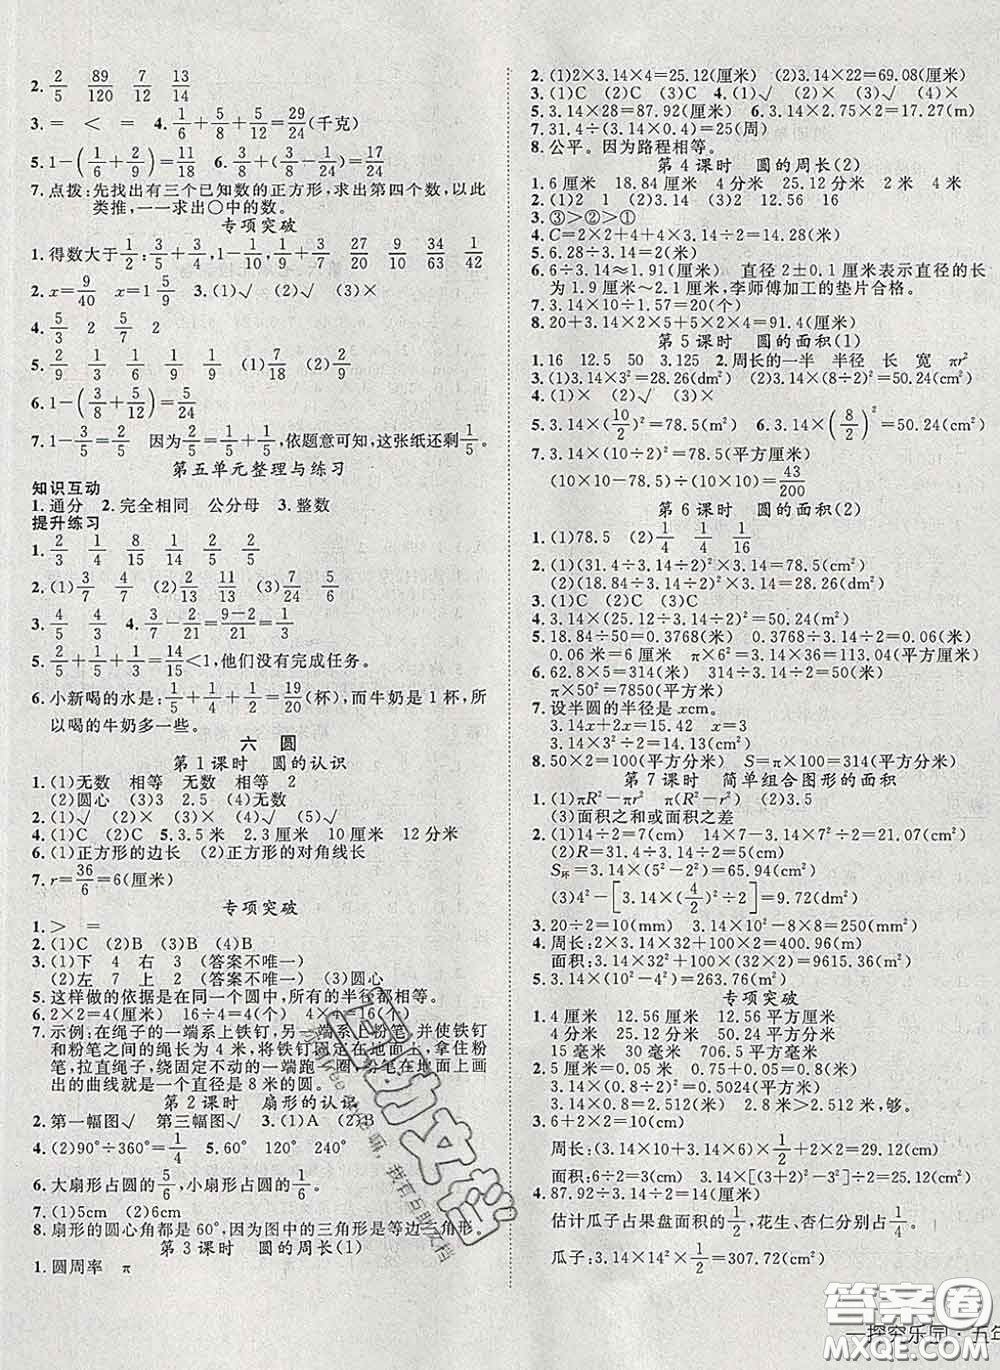 2. 2/5 89/120 7/12 13/14
3. = < = 4. 1/6+5/8+5/12=29/24(千克)
5. 1-(1/6+2/9)=11/18 6. 1/24+(1/24+5/8)=17/24
7. 点拨:先找出有三个已知数的正方形,求出第四个数,以此
类推,一一求出○中的数。
专项突破
1. 得数大于1/2:
2. x=9/40 x=1/9 3. (1)√ (2)√ (3)×
4. 5/3 2 5/7 2
6. 1-(3/8+5/12)=5/24
7. 1-3/5=2/5 因为2/5=1/5+1/5,依题意可知,这张纸还剩1/5。
第五单元整理与练习
知识互动
1. 通分 2. 完全相同 公分母 3. 整数
提升练习
1. 2/3 1/4 8/15 1/14 2/5 2/3
2. (1)3/7 4/7 (2)2/13 11/13 (3)7/24
3. 4/5 3/4 4. 9/21-2/21=(9-2)/21=1/3
5. 2/5+1/3+1/5=14/15<1,他们没有完成任务。
6. 小新喝的水是:1/5+1/4+1/2=19/20(杯),而牛奶是 1 杯,所
以喝的牛奶多一些。
六 圆
第 1 课时 圆的认识
1. (1)无数 相等 无数 相等 2
(2)圆心 (3)3 2.5 (4)无数
2. (1)√ (2)× (3)× (4)√ (5)√
4. (1)C (2)B 5. 3.5 米 2.3 厘米 10 厘米 12 分米
6. (1)正方形的边长 (2)正方形的对角线长
7. r=36/6=6(厘米)
专项突破
1. > =
2. (1)C (2)B (3)B (4)B
3. (1)下 4 右 3 (答案不唯一)
(2)左 7 上 2 (答案不唯一) (3)圆心
5. 这样做的依据是在同一个圆中,所有的半径都相等。
6. 2×2=4(厘米) 16÷4=4(个) 4×4=16(个)
7. 示例:在绳子的一端系上铁钉,另一端系上粉笔,并使铁钉
和粉笔之间的绳长为 4 米,将铁钉固定在地面上,拿住粉
笔,拉直绳子,绕固定不动的一端跑一圈,粉笔在地面上画
出的曲线就是一个直径是 8 米的圆。
第 2 课时 扇形的认识
2. 第一幅图√ 第三幅图√ 3. (1)A (2)B
4. (2)90°÷360°=1/4 5. 60° 120° 240°
6. 大扇形占圆的5/6,小扇形占圆的1/6。
7. (1)5cm (2)6cm
8. 扇形的圆心角都是 60°,因为图中的三角形是等边三角形。
第 3 课时 圆的周长(1)
1. 圆周率 π
2. (1)2×3.14×4=25.12(厘米) (2)3.14×22=69.08(厘米)
3. (1)C (2)C 4. (1)√ (2)× (3)√ (4)×
5. 3.14×28=87.92(厘米) 6. 3.14×2.75×2=17.27(m)
7. 31.4÷(3.14×0.4)=25(周)
8. 公平。因为路程相等。
第 4 课时 圆的周长(2)
1. 6 厘米 18.84 厘米 4 分米 25.12 分米 2 米 4 米
2. (1)2 1 (2)3.14 (3)2 12.56 16
3. ③>②>①
4. C=2×2+4+4×3.14÷2=14.28(米)
5. 6.28÷3.14=2(米)
6. 6÷3.14≈1.91(厘米) 直径 2±0.1 厘米表示直径的长
为 1.9 厘米~2.1 厘米,李师傅加工的垫片合格。
7. 3.14×10÷1.57=20(个)
8. 20+3.14×2×5+5×2×4=91.4(厘米)
第 5 课时 圆的面积(1)
1. 16 12.5 50 3.125 2. 周长的一半 半径 长 宽 πr²
3. (1)3.14×3²=28.26(dm²) (2)3.14×(8÷2)²=50.24(cm²)
4. (1)× (2)√ (3)×
5. 3.14×(10/2)²=78.5(m²) 6. 3.14×(8/2)²=50.24(m²)
7. 3.14×(10÷2)²=78.5(平方厘米)
(10×10-78.5)÷(10×10)=43/200
第 6 课时 圆的面积(2)
1. (1)78.5 (2)1/4 1/4 1/16
2. (1)(31.4÷3.14÷2)²×3.14=78.5(cm²)
(2)(25.12÷3.14÷2)²×3.14=50.24(cm²)
3. (1)C (2)C (3)C
4. 3.14×(25.12÷3.14÷2)²=50.24(m²)
5. 18.84÷50=0.3768(米) 0.3768÷3.14÷2=0.06(米)
0.06 米=6 厘米 π×6²=36×3.14=113.04(平方厘米)
6. 62.8×5=314(厘米) 314÷3.14÷2=50(厘米)
π×50²=7850(平方厘米)
7. 设半圆的半径是 xcm。
3.14x+2x=15.42 x=3
3.14×3²÷2=14.13(cm²)
8. 50×2=100(平方分米) S=π×100=314(平方分米)
第 7 课时 简单组合图形的面积
1. (1)πR²-πr² π×(R²-r²) (2)3.5
(3)面积之和或面积之差
2. (1)14÷2=7(cm) 14×7-3.14×7²÷2=21.07(cm²)
(2)R=31.4÷3.14÷2=5(cm)
S环=3.14×(5²-2²)=65.94(cm²)
(3)4²-[3.14×(4/2)²÷2]=9.72(dm²)
3. 20÷2=10(mm) 3.14×10²-8×8=250(mm²)
4. 周长:2×3.14×32+100×2=400.96(m)
面积:3.14×32²+100×(32×2)=9615.36(m²)
5. 3.14×(10²-4²)=263.76(m²)
专项突破
1. 4 厘米 12.56 厘米 12.56 平方厘米
4 分米 25.12 分米 50.24 平方分米
15 毫米 30 毫米 706.5 平方毫米
2. 5 厘米=0.05 米 0.75+0.05=0.8(米)
3.14×0.8²-3.14×
3.14×
3. 6÷
周长:(3.14×10+3.14×6)×1/2+2×2=29.12(厘米)
4. 87.92÷3.14÷2=14(cm)
估计瓜子占果盘面积的1/2,花生、杏仁分别占1/4。
瓜子:3.14×14²×1/2=307.72(cm²)
答案圈
MXQE.COM
一探究乐园·五年